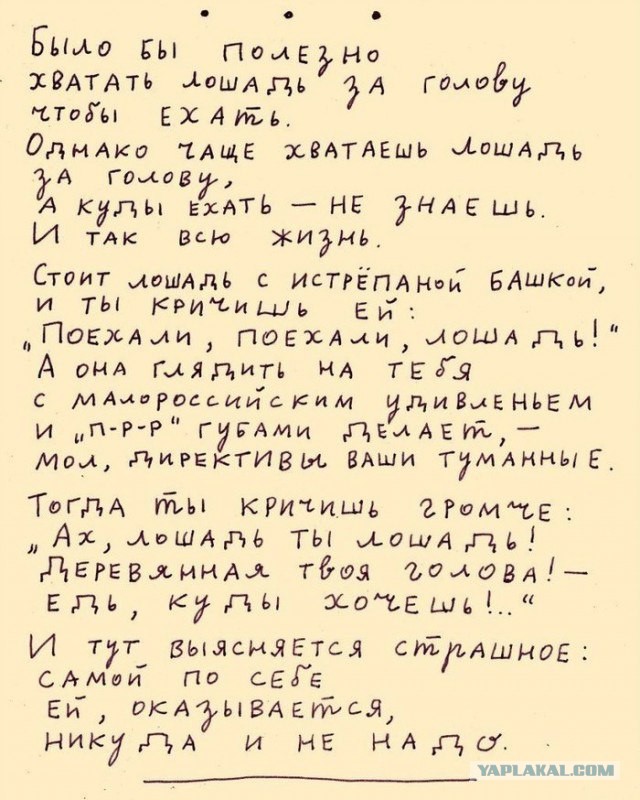 • • •
Было бы полезно
хватать лошадь за голову
чтобы ехать.
Однако чаще хватаешь лошадь
за голову,
а куды ехать — не знаешь.
И так всю жизнь.
Стоит лошадь с истрёпаной башкой,
и ты кричишь ей:
„Поехали, поехали, лошадь!“
А она глядить на тебя
с малороссийским удивленьем
и „п-р-р“ губами делает, —
мол, директивы ваши туманные.
Тогда ты кричишь громче:
„Ах, лошадь ты лошадь!
Деревянная твоя голова! —
Едь, куды хочешь!..“
И тут выясняется страшное:
самой по себе
ей, оказывается,
никуда и не надо.
YAPLAKAL.COM